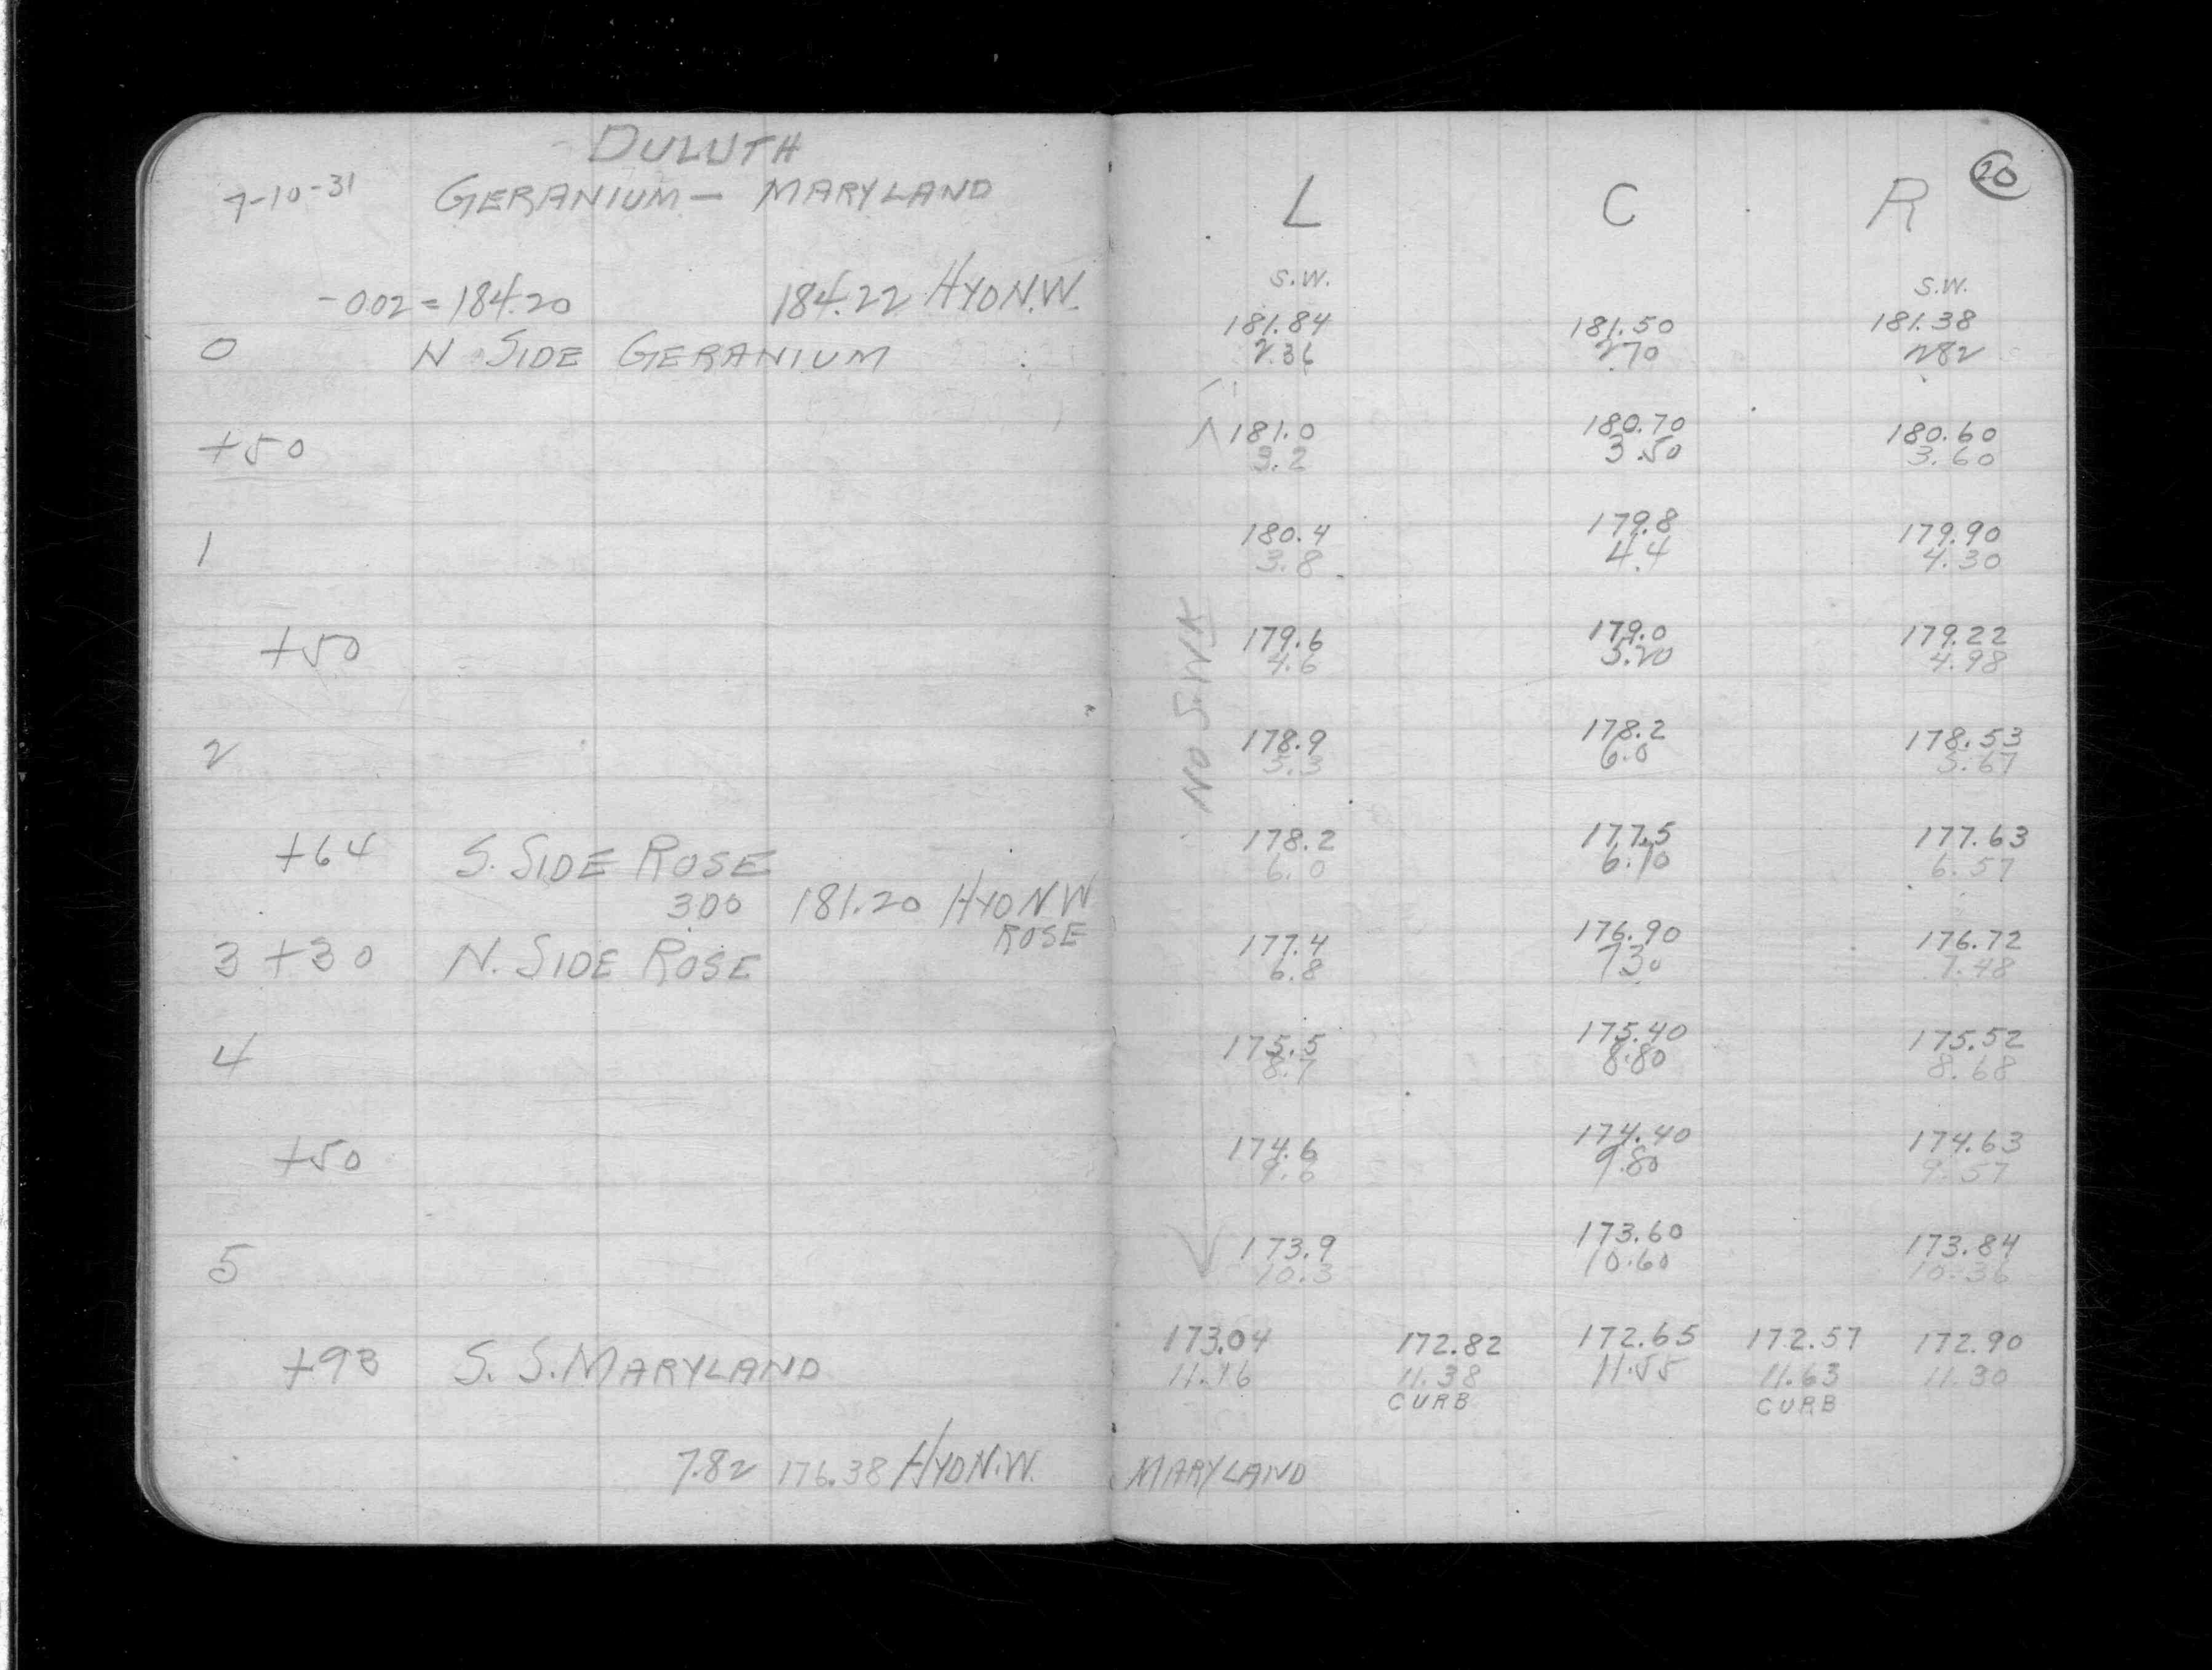 DULUTH
7-10-31 GERANIUM - MARYLAND
-0.02 = 184.20 184.22 HYDN.W.
0 N SIDE GERANIUM
+50
1
+50
2
+64 S. SIDE ROSE
3.00 181.20 HYD N W
ROSE
3 +30 N. SIDE ROSE
4
+50
5
+93 S. S. MARYLAND
7.82 176.38 HYDN.W.
20
L C R
S.W. S.W.
181.84 181.50 181.38
2.36 2.70 2.82
181.0 180.70 180.60
3.2 3.50 3.60
180.4 179.8 179.90
3.8 4.4 4.30
179.6 179.0 179.22
4.6 5.20 4.98
NO S.WK
178.9 178.2 178.53
5.3 6.0 5.67
178.2 177.5 177.63
6.0 6.70 6.57
177.4 176.90 176.72
6.8 7.30 7.48
175.5 175.40 175.52
8.7 8.80 8.68
174.6 174.40 174.63
9.6 9.80 9.57
173.9 173.60 173.84
10.3 10.60 10.36
173.04 172.82 172.65 172.57 172.90
11.16 11.38 11.55 11.63 11.30
CURB CURB
MARYLAND